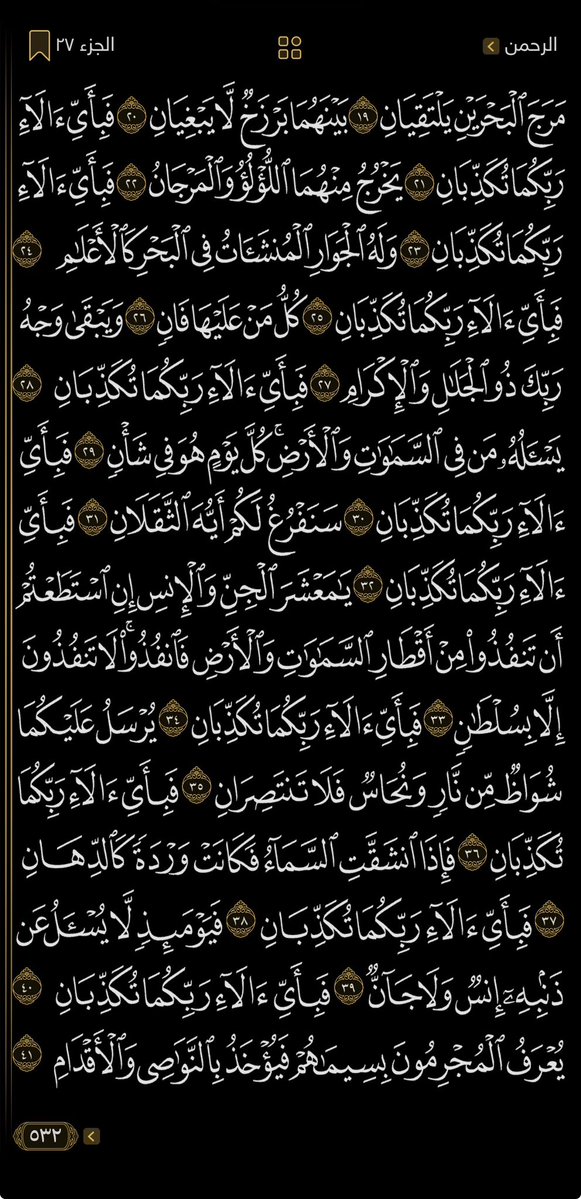 الرحمن
الجزء ٢٧
مَرَجَ ٱلْبَحْرَيْنِ يَلْتَقِيَانِ ١٩ بَيْنَهُمَا بَرْزَخٌ لَّا يَبْغِيَانِ ٢٠ فَبِأَىِّ ءَالَآءِ
رَبِّكُمَا تُكَذِّبَانِ ٢١ يَخْرُجُ مِنْهُمَا ٱللُّؤْلُؤُ وَٱلْمَرْجَانُ ٢٢ فَبِأَىِّ ءَالَآءِ
رَبِّكُمَا تُكَذِّبَانِ ٢٣ وَلَهُ ٱلْجَوَارِ ٱلْمُنشَـَٔاتُ فِى ٱلْبَحْرِ كَٱلْأَعْلَـٰمِ ٢٤
فَبِأَىِّ ءَالَآءِ رَبِّكُمَا تُكَذِّبَانِ ٢٥ كُلُّ مَنْ عَلَيْهَا فَانٍ ٢٦ وَيَبْقَىٰ وَجْهُ
رَبِّكَ ذُو ٱلْجَلَـٰلِ وَٱلْإِكْرَامِ ٢٧ فَبِأَىِّ ءَالَآءِ رَبِّكُمَا تُكَذِّبَانِ ٢٨
يَسْـَٔلُهُۥ مَن فِى ٱلسَّمَـٰوَٰتِ وَٱلْأَرْضِ ۚ كُلَّ يَوْمٍ هُوَ فِى شَأْنٍ ٢٩ فَبِأَىِّ
ءَالَآءِ رَبِّكُمَا تُكَذِّبَانِ ٣٠ سَنَفْرُغُ لَكُمْ أَيُّهَ ٱلثَّقَلَانِ ٣١ فَبِأَىِّ
ءَالَآءِ رَبِّكُمَا تُكَذِّبَانِ ٣٢ يَـٰمَعْشَرَ ٱلْجِنِّ وَٱلْإِنسِ إِنِ ٱسْتَطَعْتُمْ
أَن تَنفُذُوا۟ مِنْ أَقْطَارِ ٱلسَّمَـٰوَٰتِ وَٱلْأَرْضِ فَٱنفُذُوا۟ ۚ لَا تَنفُذُونَ
إِلَّا بِسُلْطَـٰنٍ ٣٣ فَبِأَىِّ ءَالَآءِ رَبِّكُمَا تُكَذِّبَانِ ٣٤ يُرْسَلُ عَلَيْكُمَا
شُوَاظٌ مِّن نَّارٍ وَنُحَاسٌ فَلَا تَنتَصِرَانِ ٣٥ فَبِأَىِّ ءَالَآءِ رَبِّكُمَا
تُكَذِّبَانِ ٣٦ فَإِذَا ٱنشَقَّتِ ٱلسَّمَآءُ فَكَانَتْ وَرْدَةً كَٱلدِّهَانِ
٣٧ فَبِأَىِّ ءَالَآءِ رَبِّكُمَا تُكَذِّبَانِ ٣٨ فَيَوْمَئِذٍ لَّا يُسْـَٔلُ عَن
ذَنۢبِهِۦٓ إِنسٌ وَلَا جَآنٌّ ٣٩ فَبِأَىِّ ءَالَآءِ رَبِّكُمَا تُكَذِّبَانِ ٤٠
يُعْرَفُ ٱلْمُجْرِمُونَ بِسِيمَـٰهُمْ فَيُؤْخَذُ بِٱلنَّوَٰصِى وَٱلْأَقْدَامِ ٤١
٥٣٢